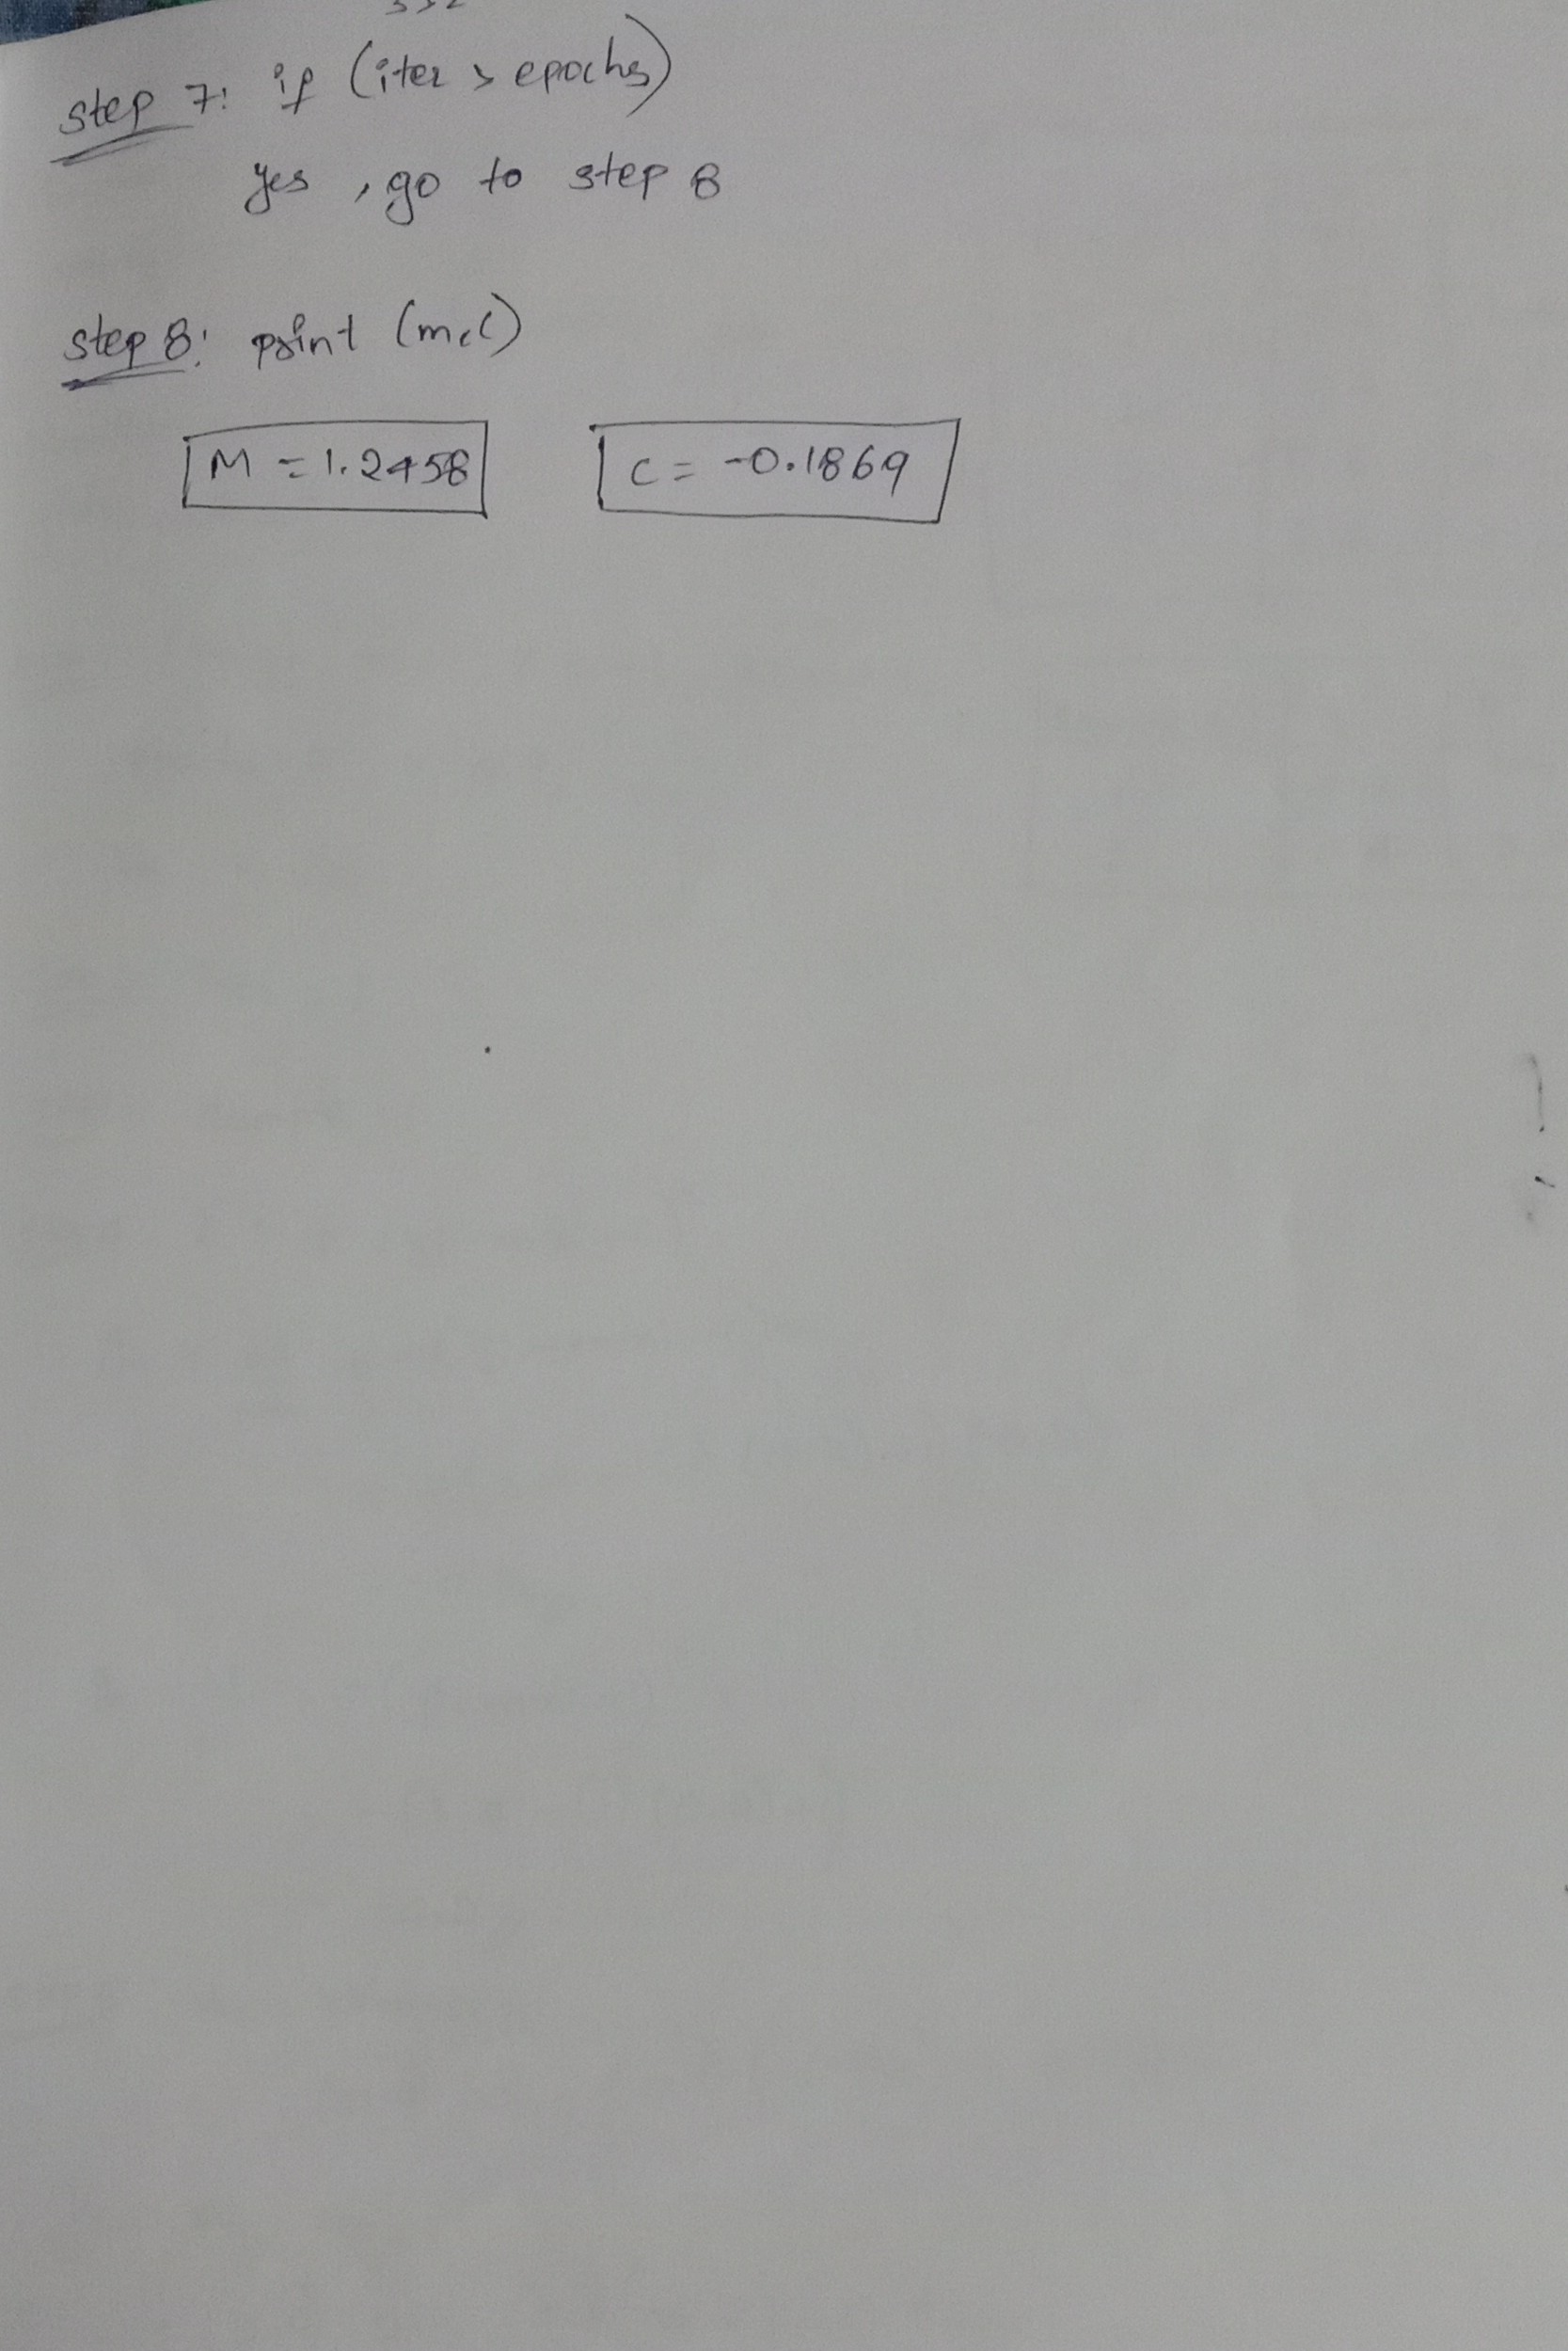 step 7: if (iter > epochs)
yes, go to step 8
step 8: print (m,c)
M = 1.2458 C = -0.1869